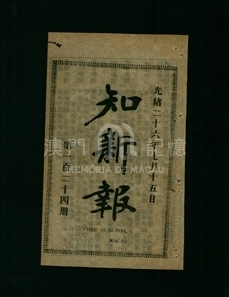 光緒二十六年
五日
知新報
第一百二十四冊
澳門記憶
MEMÓRIA DE MACAU
MACAU